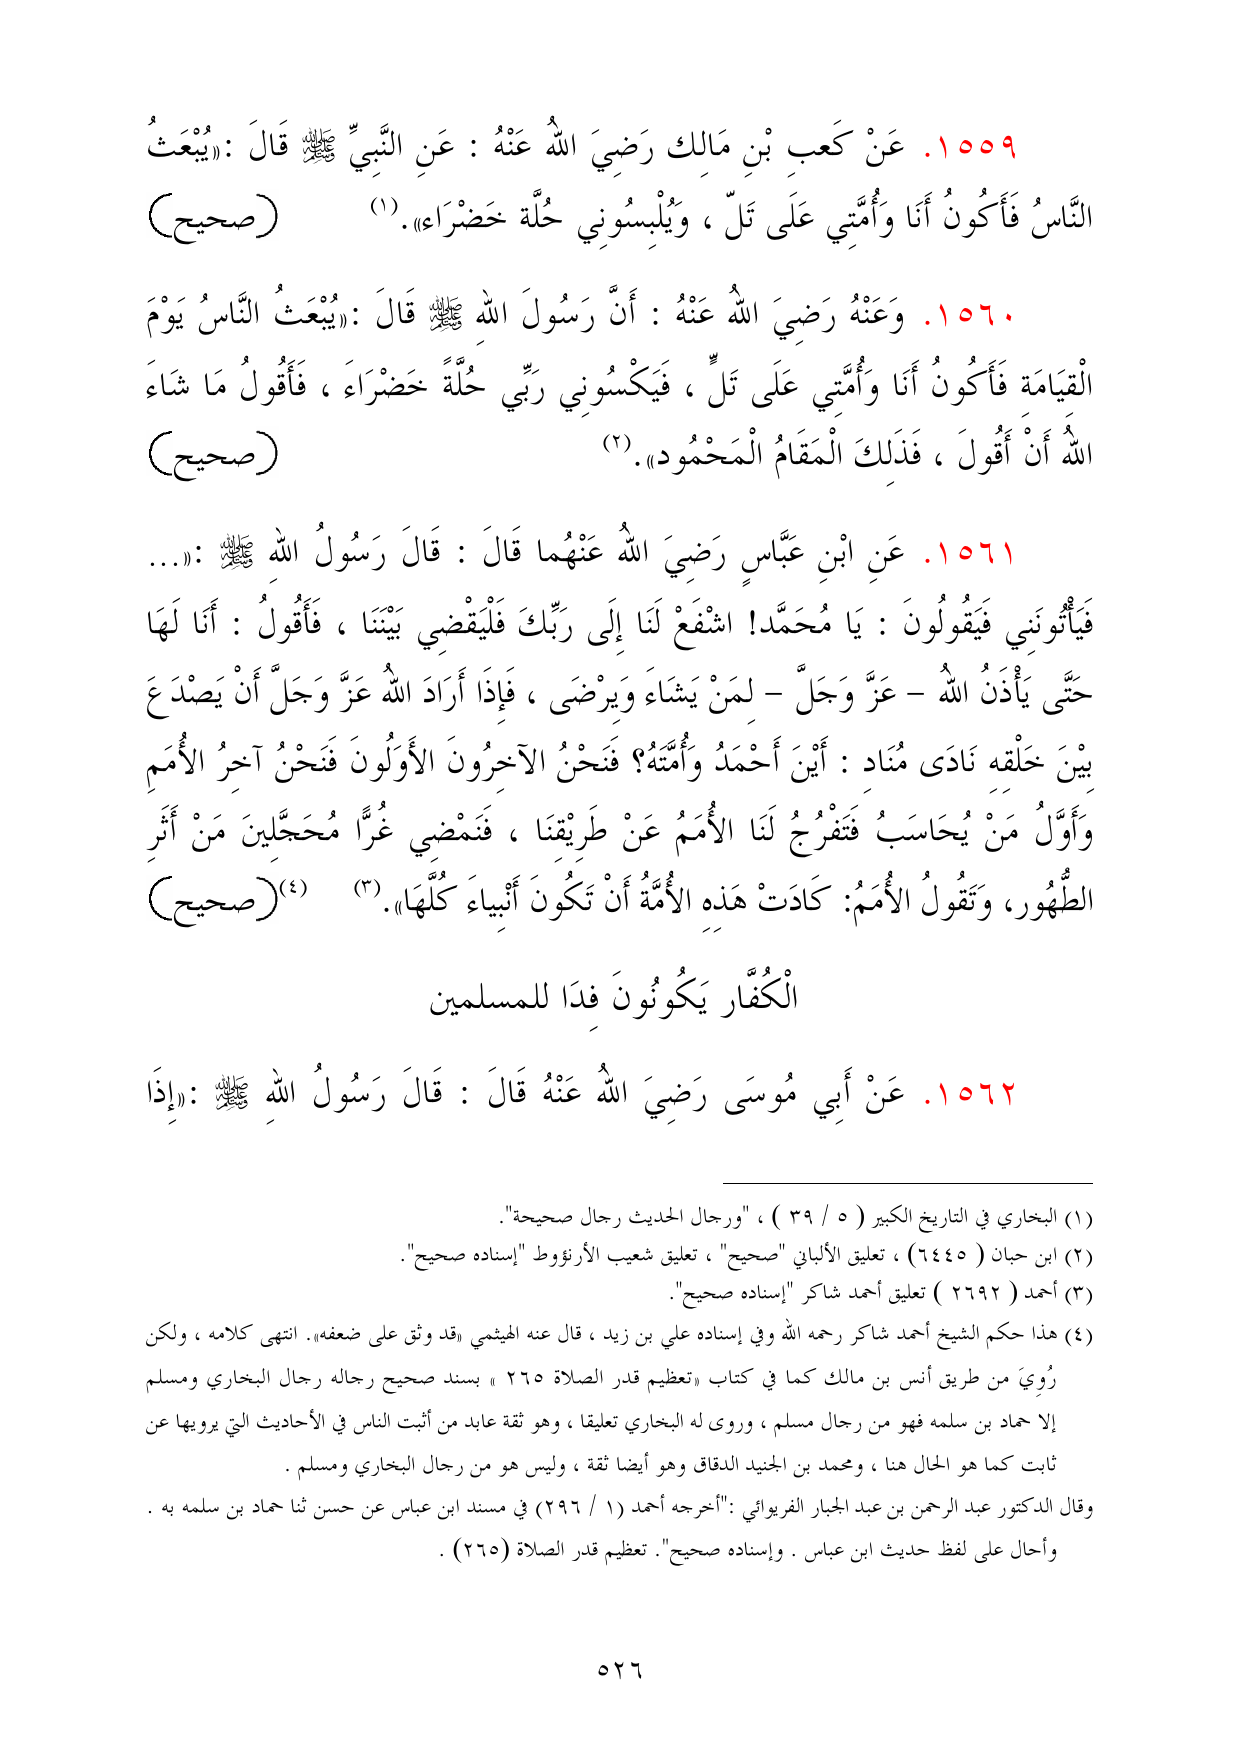 ١٥٥٩. عَنْ كَعبِ بْنِ مَالِك رَضِيَ اللهُ عَنْهُ : عَنِ النَّبِيِّ ﷺ قَالَ :«يُبْعَثُ
النَّاسُ فَأَكُونُ أَنَا وَأُمَّتِي عَلَى تَلّ ، وَيُلْبِسُونِي حُلَّة خَضْرَاء».(١) (صحيح)
١٥٦٠. وَعَنْهُ رَضِيَ اللهُ عَنْهُ : أَنَّ رَسُولَ اللهِ ﷺ قَالَ :«يُبْعَثُ النَّاسُ يَوْمَ
الْقِيَامَةِ فَأَكُونُ أَنَا وَأُمَّتِي عَلَى تَلٍّ ، فَيَكْسُونِي رَبِّي حُلَّةً خَضْرَاءَ ، فَأَقُولُ مَا شَاءَ
اللهُ أَنْ أَقُولَ ، فَذَلِكَ الْمَقَامُ الْمَحْمُود».(٢) (صحيح)
١٥٦١. عَنِ ابْنِ عَبَّاسٍ رَضِيَ اللهُ عَنْهُما قَالَ : قَالَ رَسُولُ اللهِ ﷺ :«...
فَيَأْتُونَنِي فَيَقُولُونَ : يَا مُحَمَّد! اشْفَعْ لَنَا إِلَى رَبِّكَ فَلْيَقْضِي بَيْنَنَا ، فَأَقُولُ : أَنَا لَهَا
حَتَّى يَأْذَنُ اللهُ – عَزَّ وَجَلَّ – لِمَنْ يَشَاءَ وَيَرْضَى ، فَإِذَا أَرَادَ اللهُ عَزَّ وَجَلَّ أَنْ يَصْدَعَ
بِيْنَ خَلْقِهِ نَادَى مُنَادِ : أَيْنَ أَحْمَدُ وَأُمَّتَهُ؟ فَنَحْنُ الآخِرُونَ الأَوَلُونَ فَنَحْنُ آخِرُ الأُمَمِ
وَأَوَّلُ مَنْ يُحَاسَبُ فَتَفْرُجُ لَنَا الأُمَمُ عَنْ طَرِيْقِنَا ، فَنَمْضِي غُرًّا مُحَجَّلِينَ مَنْ أَثَرِ
الطُّهُور، وَتَقُولُ الأُمَمُ: كَادَتْ هَذِهِ الأُمَّةُ أَنْ تَكُونَ أَنْبِياءَ كُلَّهَا».(٣) (٤)(صحيح)
الْكُفَّار يَكُونُونَ فِدَا للمسلمين
١٥٦٢. عَنْ أَبِي مُوسَى رَضِيَ اللهُ عَنْهُ قَالَ : قَالَ رَسُولُ اللهِ ﷺ :«إِذَا
(١) البخاري في التاريخ الكبير ( ٥ / ٣٩ ) ، "ورجال الحديث رجال صحيحة".
(٢) ابن حبان ( ٦٤٤٥) ، تعليق الألباني "صحيح" ، تعليق شعيب الأرنؤوط "إسناده صحيح".
(٣) أحمد ( ٢٦٩٢ ) تعليق أحمد شاكر "إسناده صحيح".
(٤) هذا حكم الشيخ أحمد شاكر رحمه الله وفي إسناده علي بن زيد ، قال عنه الهيثمي «قد وثق على ضعفه». انتهى كلامه ، ولكن
رُوِيَ من طريق أنس بن مالك كما في كتاب «تعظيم قدر الصلاة ٢٦٥ » بسند صحيح رجاله رجال البخاري ومسلم
إلا حماد بن سلمه فهو من رجال مسلم ، وروى له البخاري تعليقا ، وهو ثقة عابد من أثبت الناس في الأحاديث التي يرويها عن
ثابت كما هو الحال هنا ، ومحمد بن الجنيد الدقاق وهو أيضا ثقة ، وليس هو من رجال البخاري ومسلم .
وقال الدكتور عبد الرحمن بن عبد الجبار الفريوائي :"أخرجه أحمد (١ / ٢٩٦) في مسند ابن عباس عن حسن ثنا حماد بن سلمه به .
وأحال على لفظ حديث ابن عباس . وإسناده صحيح". تعظيم قدر الصلاة (٢٦٥) .
٥٢٦